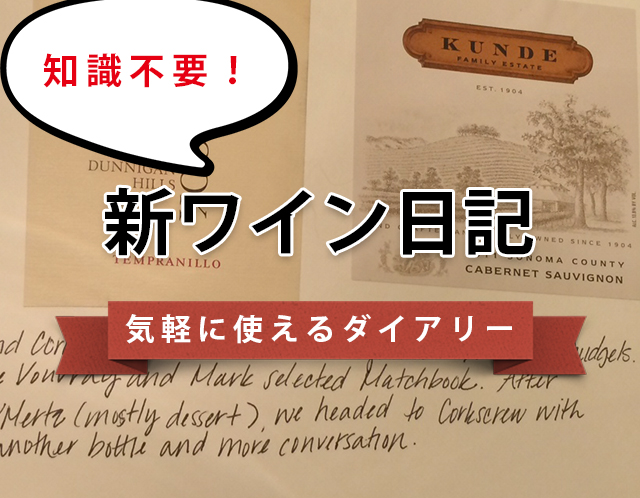 知識不要！
KUNDE
FAMILY ESTATE
EST. 1904
DUNNIGAN
HILLS
新ワイン日記
OWNED SINCE 1904
SONOMA COUNTY
TEMPRANILLO
CABERNET SAUVIGNON
気軽に使えるダイアリー
udgets.
Vouvray and Mark selected Matchbook. After
Mertz (mostly dessert), we headed to Corkscrew with
another bottle and more conversation.